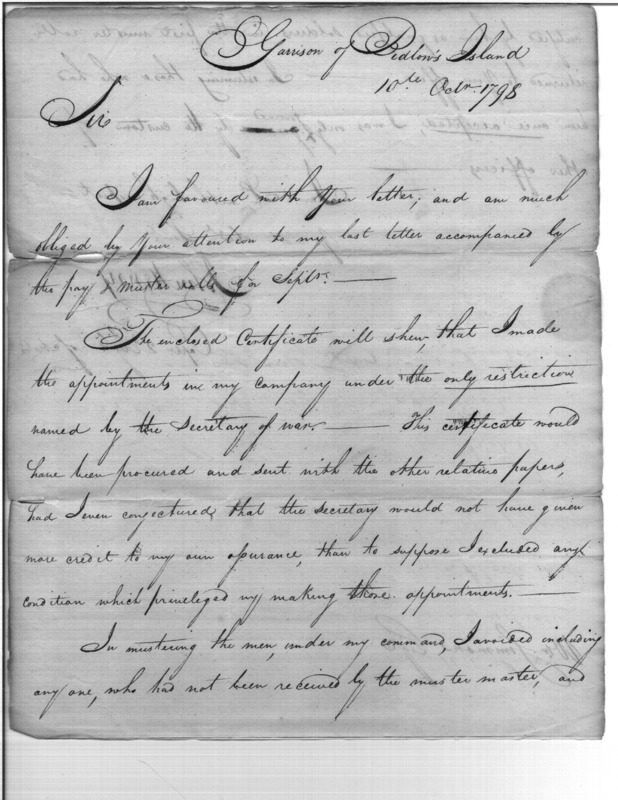 Garrison of Bedlow's Island
10th Octr. 1798
Sir
I am favoured with your letter, and am much
obliged by your attention to my last letter accompanied by
the pay & muster rolls for Septr. —
The enclosed Certificate will shew, that I made
the appointments in my company under the only restriction
named by the Secretary of war. — This certificate would
have been procured and sent with the other relative papers,
had I even conjectured, that the secretary would not have given
more credit to my own assurance, than to suppose I excluded any
condition which privileged my making those appointments. —
In mustering the men, under my command, I avoided including
any one, who had not been received by the muster master, and